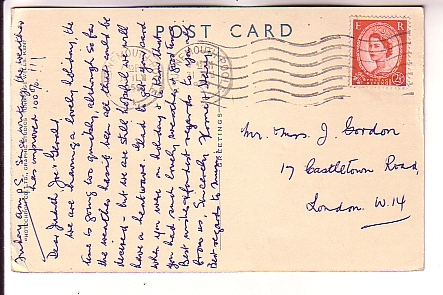 POST CARD
E R
2½
Friday aft. P.S. Since writing the weather
has improved 100% !!!
Dear Judith, Joe & Gerald,
We are having a lovely holiday, the
time is going too quickly, although so far
the weather hasn't been all that could be
desired - but we are still hopeful we will
have a heatwave. Glad to hear you and
when you were on holiday &
you had such lovely weather &
Best wishes & fondest regards to you
from us, Sincerely,
Best regards to
GREETINGS
Mr. Mrs. J. Gordon
17 Castletown Road,
London. W.14